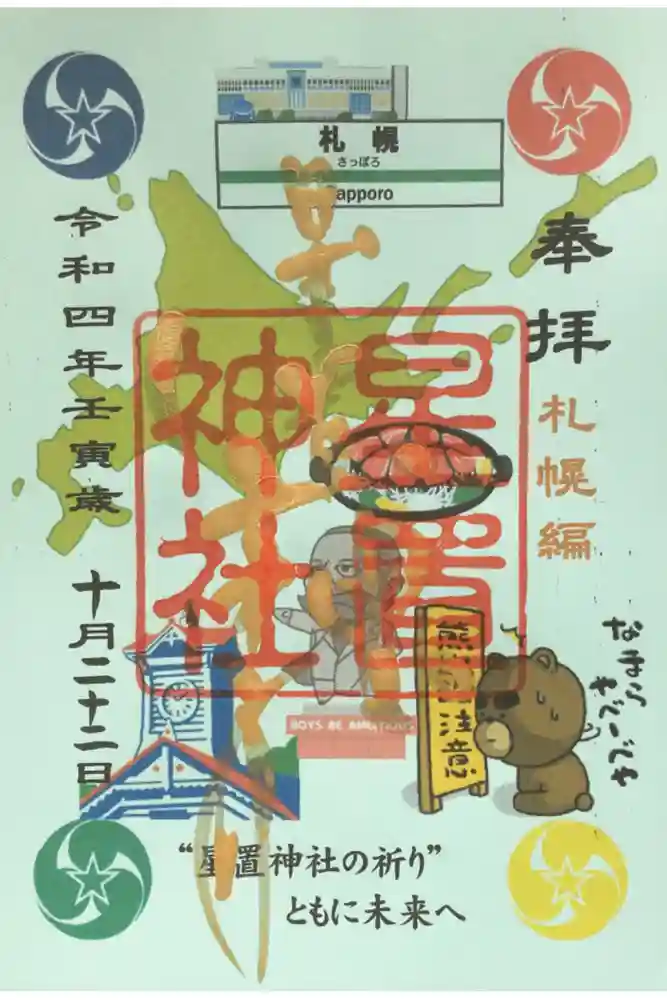 札幌
さっぽろ
apporo
奉拝
札幌編
星置
神社
令和四年壬寅歳
十月二十二日
BOYS BE AMBITIOUS
注意
なまら
やべーでや
“星置神社の祈り”
ともに未来へ